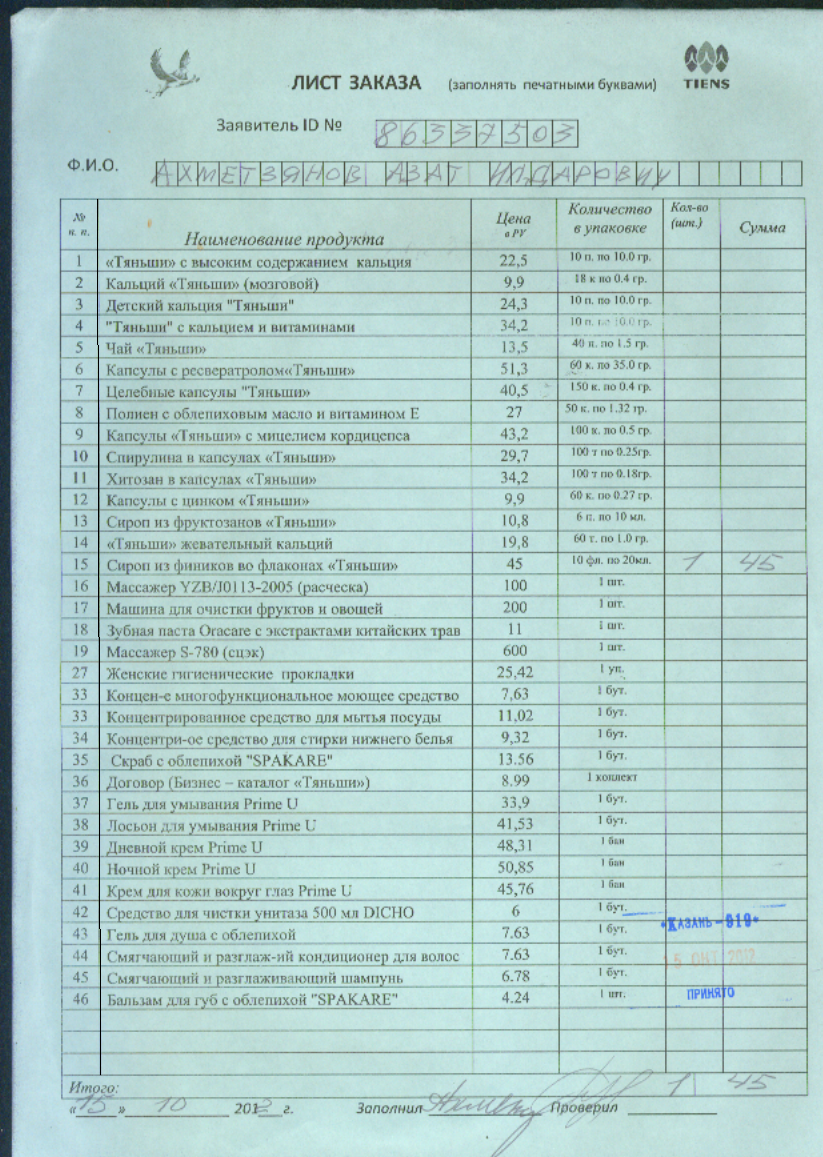 ЛИСТ ЗАКАЗА (заполнять печатными буквами)
TIENS
Заявитель ID № 86337503
Ф.И.О. АХМЕТЗЯНОВ АЗАТ ИЛДАРОВИЧ
№ п. п. Наименование продукта Цена в РУ Количество в упаковке Кол-во (шт.) Сумма
1 «Тяньши» с высоким содержанием кальция 22,5 10 п. по 10.0 гр.
2 Кальций «Тяньши» (мозговой) 9,9 18 к по 0.4 гр.
3 Детский кальция "Тяньши" 24,3 10 п. по 10.0 гр.
4 "Тяньши" с кальцием и витаминами 34,2 10 п. по 10.0 гр.
5 Чай «Тяньши» 13,5 40 п. по 1.5 гр.
6 Капсулы с ресвератролом«Тяньши» 51,3 60 к. по 35.0 гр.
7 Целебные капсулы "Тяньши" 40,5 150 к. по 0.4 гр.
8 Полиен с облепиховым масло и витамином Е 27 50 к. по 1.32 гр.
9 Капсулы «Тяньши» с мицелием кордицепса 43,2 100 к. по 0.5 гр.
10 Спирулина в капсулах «Тяньши» 29,7 100 т по 0.25гр.
11 Хитозан в капсулах «Тяньши» 34,2 100 т по 0.18гр.
12 Капсулы с цинком «Тяньши» 9,9 60 к. по 0.27 гр.
13 Сироп из фруктозанов «Тяньши» 10,8 6 п. по 10 мл.
14 «Тяньши» жевательный кальций 19,8 60 т. по 1.0 гр.
15 Сироп из фиников во флаконах «Тяньши» 45 10 фл. по 20мл. 1 45
16 Массажер YZB/J0113-2005 (расческа) 100 1 шт.
17 Машина для очистки фруктов и овощей 200 1 шт.
18 Зубная паста Oracare с экстрактами китайских трав 11 1 шт.
19 Массажер S-780 (сцэк) 600 1 шт.
27 Женские гигиенические прокладки 25,42 1 уп.
33 Концен-е многофункциональное моющее средство 7,63 1 бут.
33 Концентрированное средство для мытья посуды 11,02 1 бут.
34 Концентри-ое средство для стирки нижнего белья 9,32 1 бут.
35 Скраб с облепихой "SPAKARE" 13.56 1 бут.
36 Договор (Бизнес – каталог «Тяньши») 8.99 1 коплект
37 Гель для умывания Prime U 33,9 1 бут.
38 Лосьон для умывания Prime U 41,53 1 бут.
39 Дневной крем Prime U 48,31 1 бан
40 Ночной крем Prime U 50,85 1 бан
41 Крем для кожи вокруг глаз Prime U 45,76 1 бан
42 Средство для чистки унитаза 500 мл DICHO 6 1 бут.
43 Гель для душа с облепихой 7.63 1 бут.
44 Смягчающий и разглаж-ий кондиционер для волос 7.63 1 бут.
45 Смягчающий и разглаживающий шампунь 6.78 1 бут.
46 Бальзам для губ с облепихой "SPAKARE" 4.24 1 шт.
*КАЗАНЬ-919*
15 ОКТ 2012
ПРИНЯТО
Итого: 1 45
«15» 10 2012 г. Заполнил Проверил